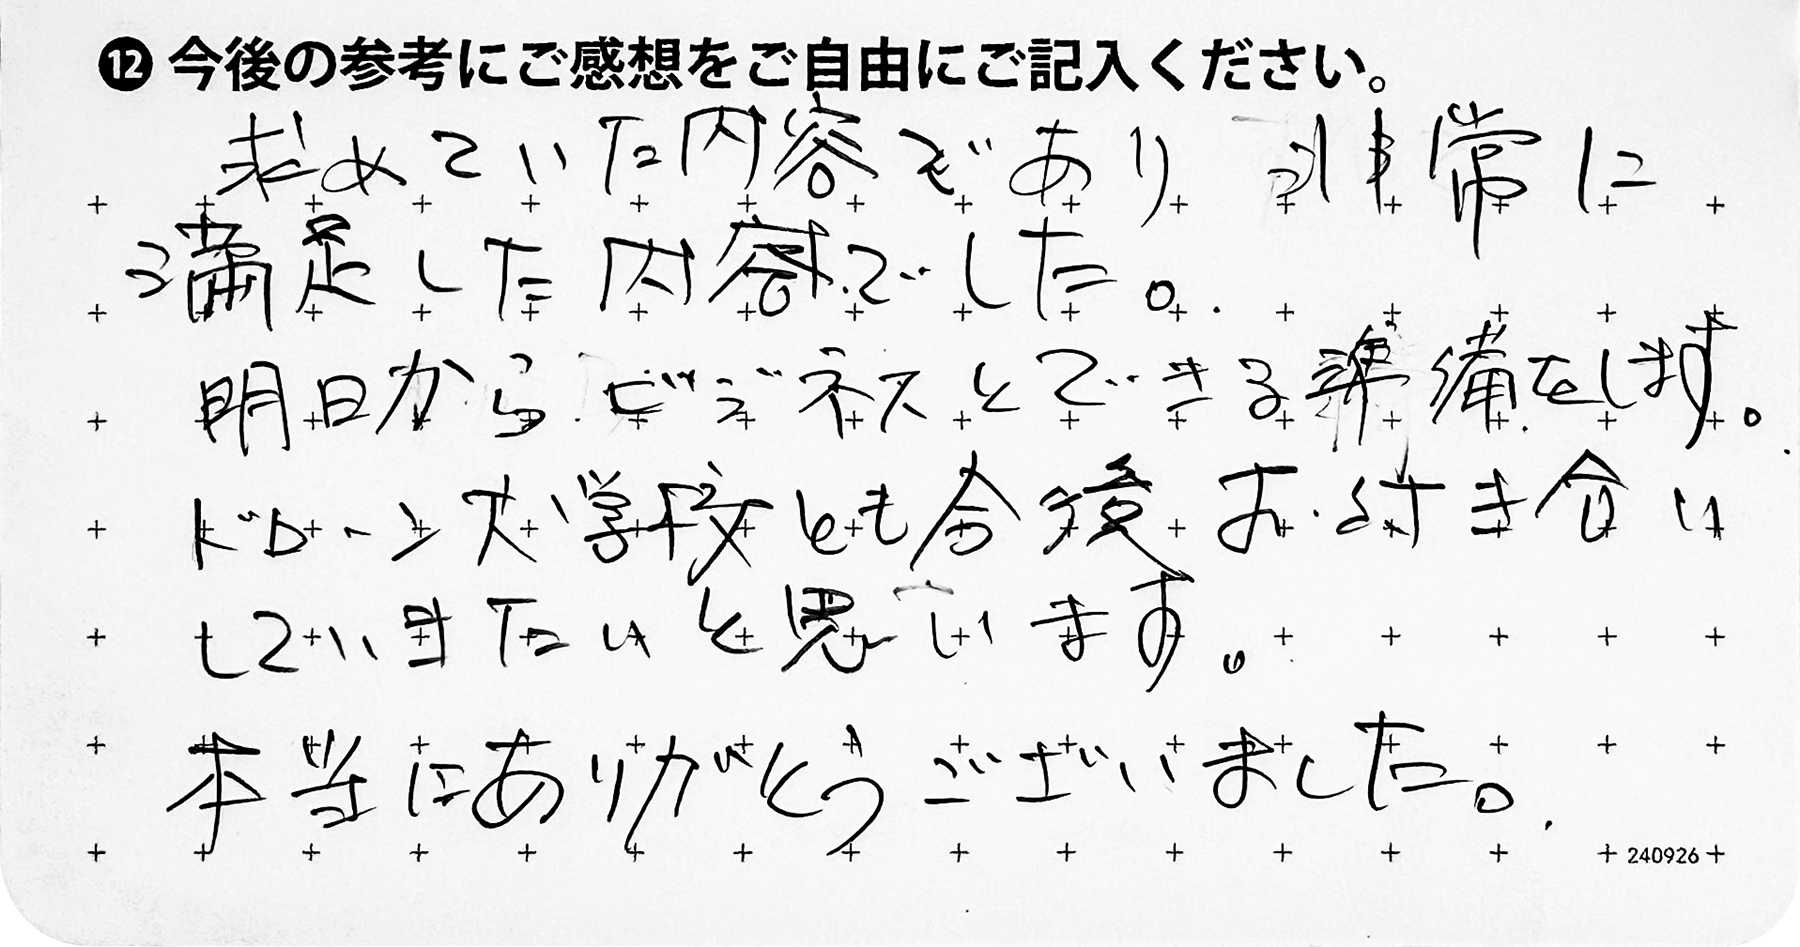 ⓬ 今後の参考にご感想をご自由にご記入ください。
求めていた内容であり 非常に
満足した内容でした。
明日からビジネスとできる準備をします。
ドローン大学校とも今後お付き合い
していきたいと思います。
本当にありがとうございました。
240926